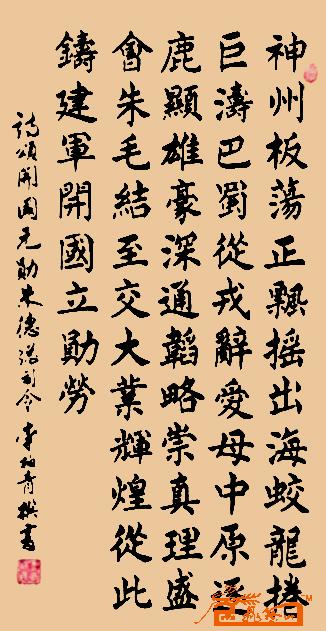 神州板蕩正飄摇出海蛟龍捲
巨濤巴蜀從戎辭愛母中原逐
鹿顯雄豪深通韜略崇真理盛
會朱毛結至交大業輝煌從此
鑄建軍開國立勛勞
詩頌開國元勛朱德總司令 李柏青撰書